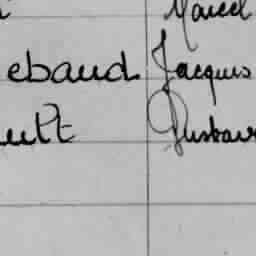 Marcel
ebaud Jacques
ult Gustav